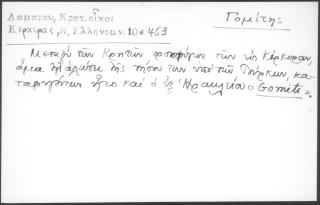 Λαμπρου, Κρητ. οἶκοι
Κερκυρας, Ν. Ελληνομν. 10ε 453
Γομίτης
Μεταξὺ τῶν Κρητῶν προσφύγων τῶν εἰς Κέρκυραν,
ἅμα τῇ ἁλώσει τῆς νήσου των ὑπὸ τῶν Τούρκων, κα-
ταφυγόντων ἦτο καὶ ὁ ἐξ Ἡρακλείου « Gomiti ».